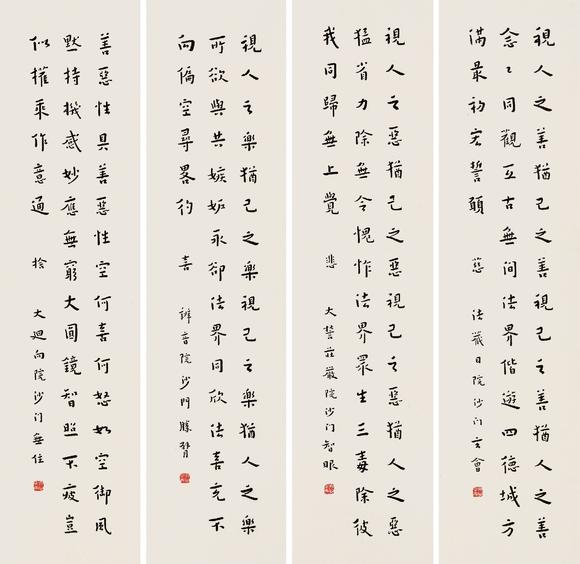 視人之善猶己之善視己之善猶人之善
念〻同觀亙古無间法界偕遊四德城方
滿最初宏誓願 慈 法藏日院沙门玄會
視人之惡猶己之惡視己之惡猶人之惡
猛省力除無令愧怍法界眾生三毒除彼
我同歸無上覺 悲 大誓莊嚴院沙门智眼
視人之樂猶己之樂視己之樂猶人之樂
所欲與共嫉妬永卻法界同欣法喜充不
向偏空尋畧彴 喜 辯音院沙門勝臂
善惡性具善惡性空何喜何怒如空御風
默持機感妙應無窮大圓鏡智照不疲豈
似權乘作意通 捨 大迴向院沙门無住